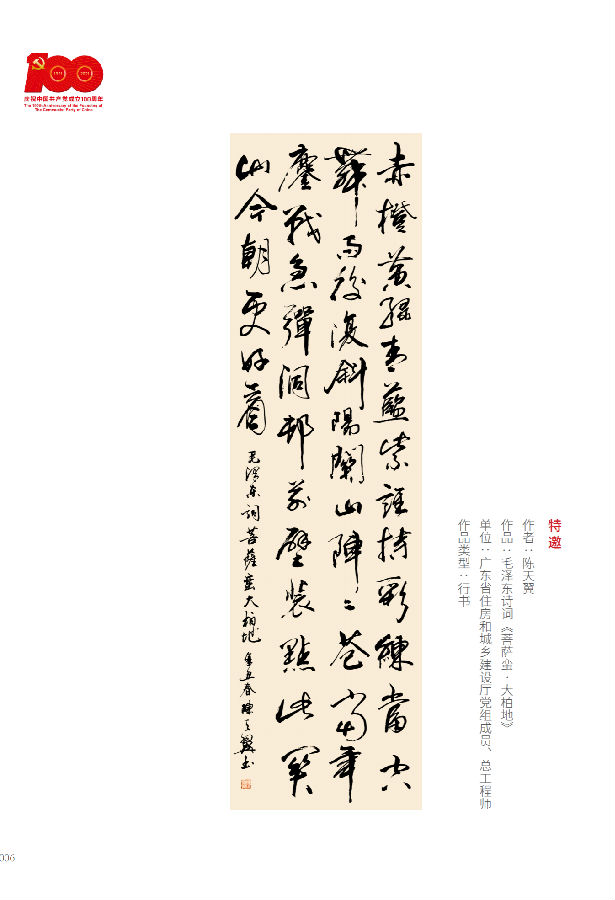 100
1921 2021
庆祝中国共产党成立100周年
The 100th Anniversary of the Founding of
The Communist Party of China
赤橙黄綠青藍紫誰持彩練當空
舞雨後復斜陽關山陣〻蒼當年
鏖戰急彈洞邨前壁裝點此關
山今朝更好看
毛澤东詞菩薩蛮大柏地 辛丑春陳天翼书
特邀
作者：陈天翼
作品：毛泽东诗词《菩萨蛮·大柏地》
单位：广东省住房和城乡建设厅党组成员、总工程师
作品类型：行书
006